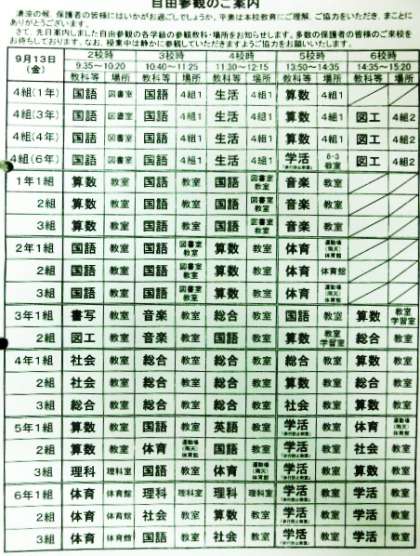 自由参観のご案内
保護者の皆様にはいかがお過ごしでしょうか。平素は本校教育にご理解、ご協力をいただき、まことに
ありがとうございます。
さて、先日案内しました自由参観の各学級の参観教科・場所をお知らせします。多数の保護者の皆様のご来校を
お待ちしております。なお、授業中は静かに参観していただきますようご協力をお願いいたします。
9月13日(金) 2校時 9:35~10:20 3校時 10:40~11:25 4校時 11:30~12:15 5校時 13:50~14:35 6校時 14:35~15:20
教科等 場所 教科等 場所 教科等 場所 教科等 場所 教科等 場所
4組(1年) 国語 図書室 国語 4組1 生活 4組1 算数 4組1
4組(3年) 国語 図書室 国語 4組1 生活 4組1 算数 4組1 図工 4組2
4組(4年) 国語 図書室 国語 4組1 生活 4組1 算数 4組1 図工 4組2
4組(6年) 国語 図書室 国語 4組1 生活 4組1 学活 6-3教室 図工 4組2
1年1組 算数 教室 国語 教室 国語 図書室 教室 音楽 教室
2組 算数 教室 国語 教室 国語 図書室 教室 音楽 教室
3組 算数 教室 国語 教室 国語 図書室 教室 音楽 教室
2年1組 国語 教室 国語 図書室 教室 算数 教室 体育 運動場(雨天)体育館
2組 国語 教室 国語 図書室 教室 算数 教室 体育 体育館
3組 国語 教室 国語 図書室 教室 算数 教室 体育 運動場(雨天)体育館
3年1組 書写 教室 音楽 教室 総合 教室 国語 教室 算数 教室 学習室
2組 図工 教室 音楽 教室 国語 教室 算数 教室 学習室 総合 教室
4年1組 社会 教室 総合 教室 総合 教室 算数 教室 総合 教室
2組 社会 教室 総合 教室 総合 教室 算数 教室 総合 教室
3組 総合 教室 総合 教室 総合 教室 社会 教室 算数 教室
5年1組 算数 教室 国語 教室 英語 教室 学活 教室 体育 運動場(雨天)体育館
2組 算数 教室 体育 運動場(雨天)体育館 国語 教室 学活 教室 社会 教室
3組 理科 理科室 国語 教室 体育 運動場(雨天)体育館 学活 教室 算数 教室
6年1組 体育 体育館 理科 理科室 理科 理科室 学活 教室 学活 教室
2組 体育 体育館 社会 教室 算数 教室 学活 教室 学活 教室
3組 体育 体育館 国語 教室 算数 教室 学活 教室 学活 教室